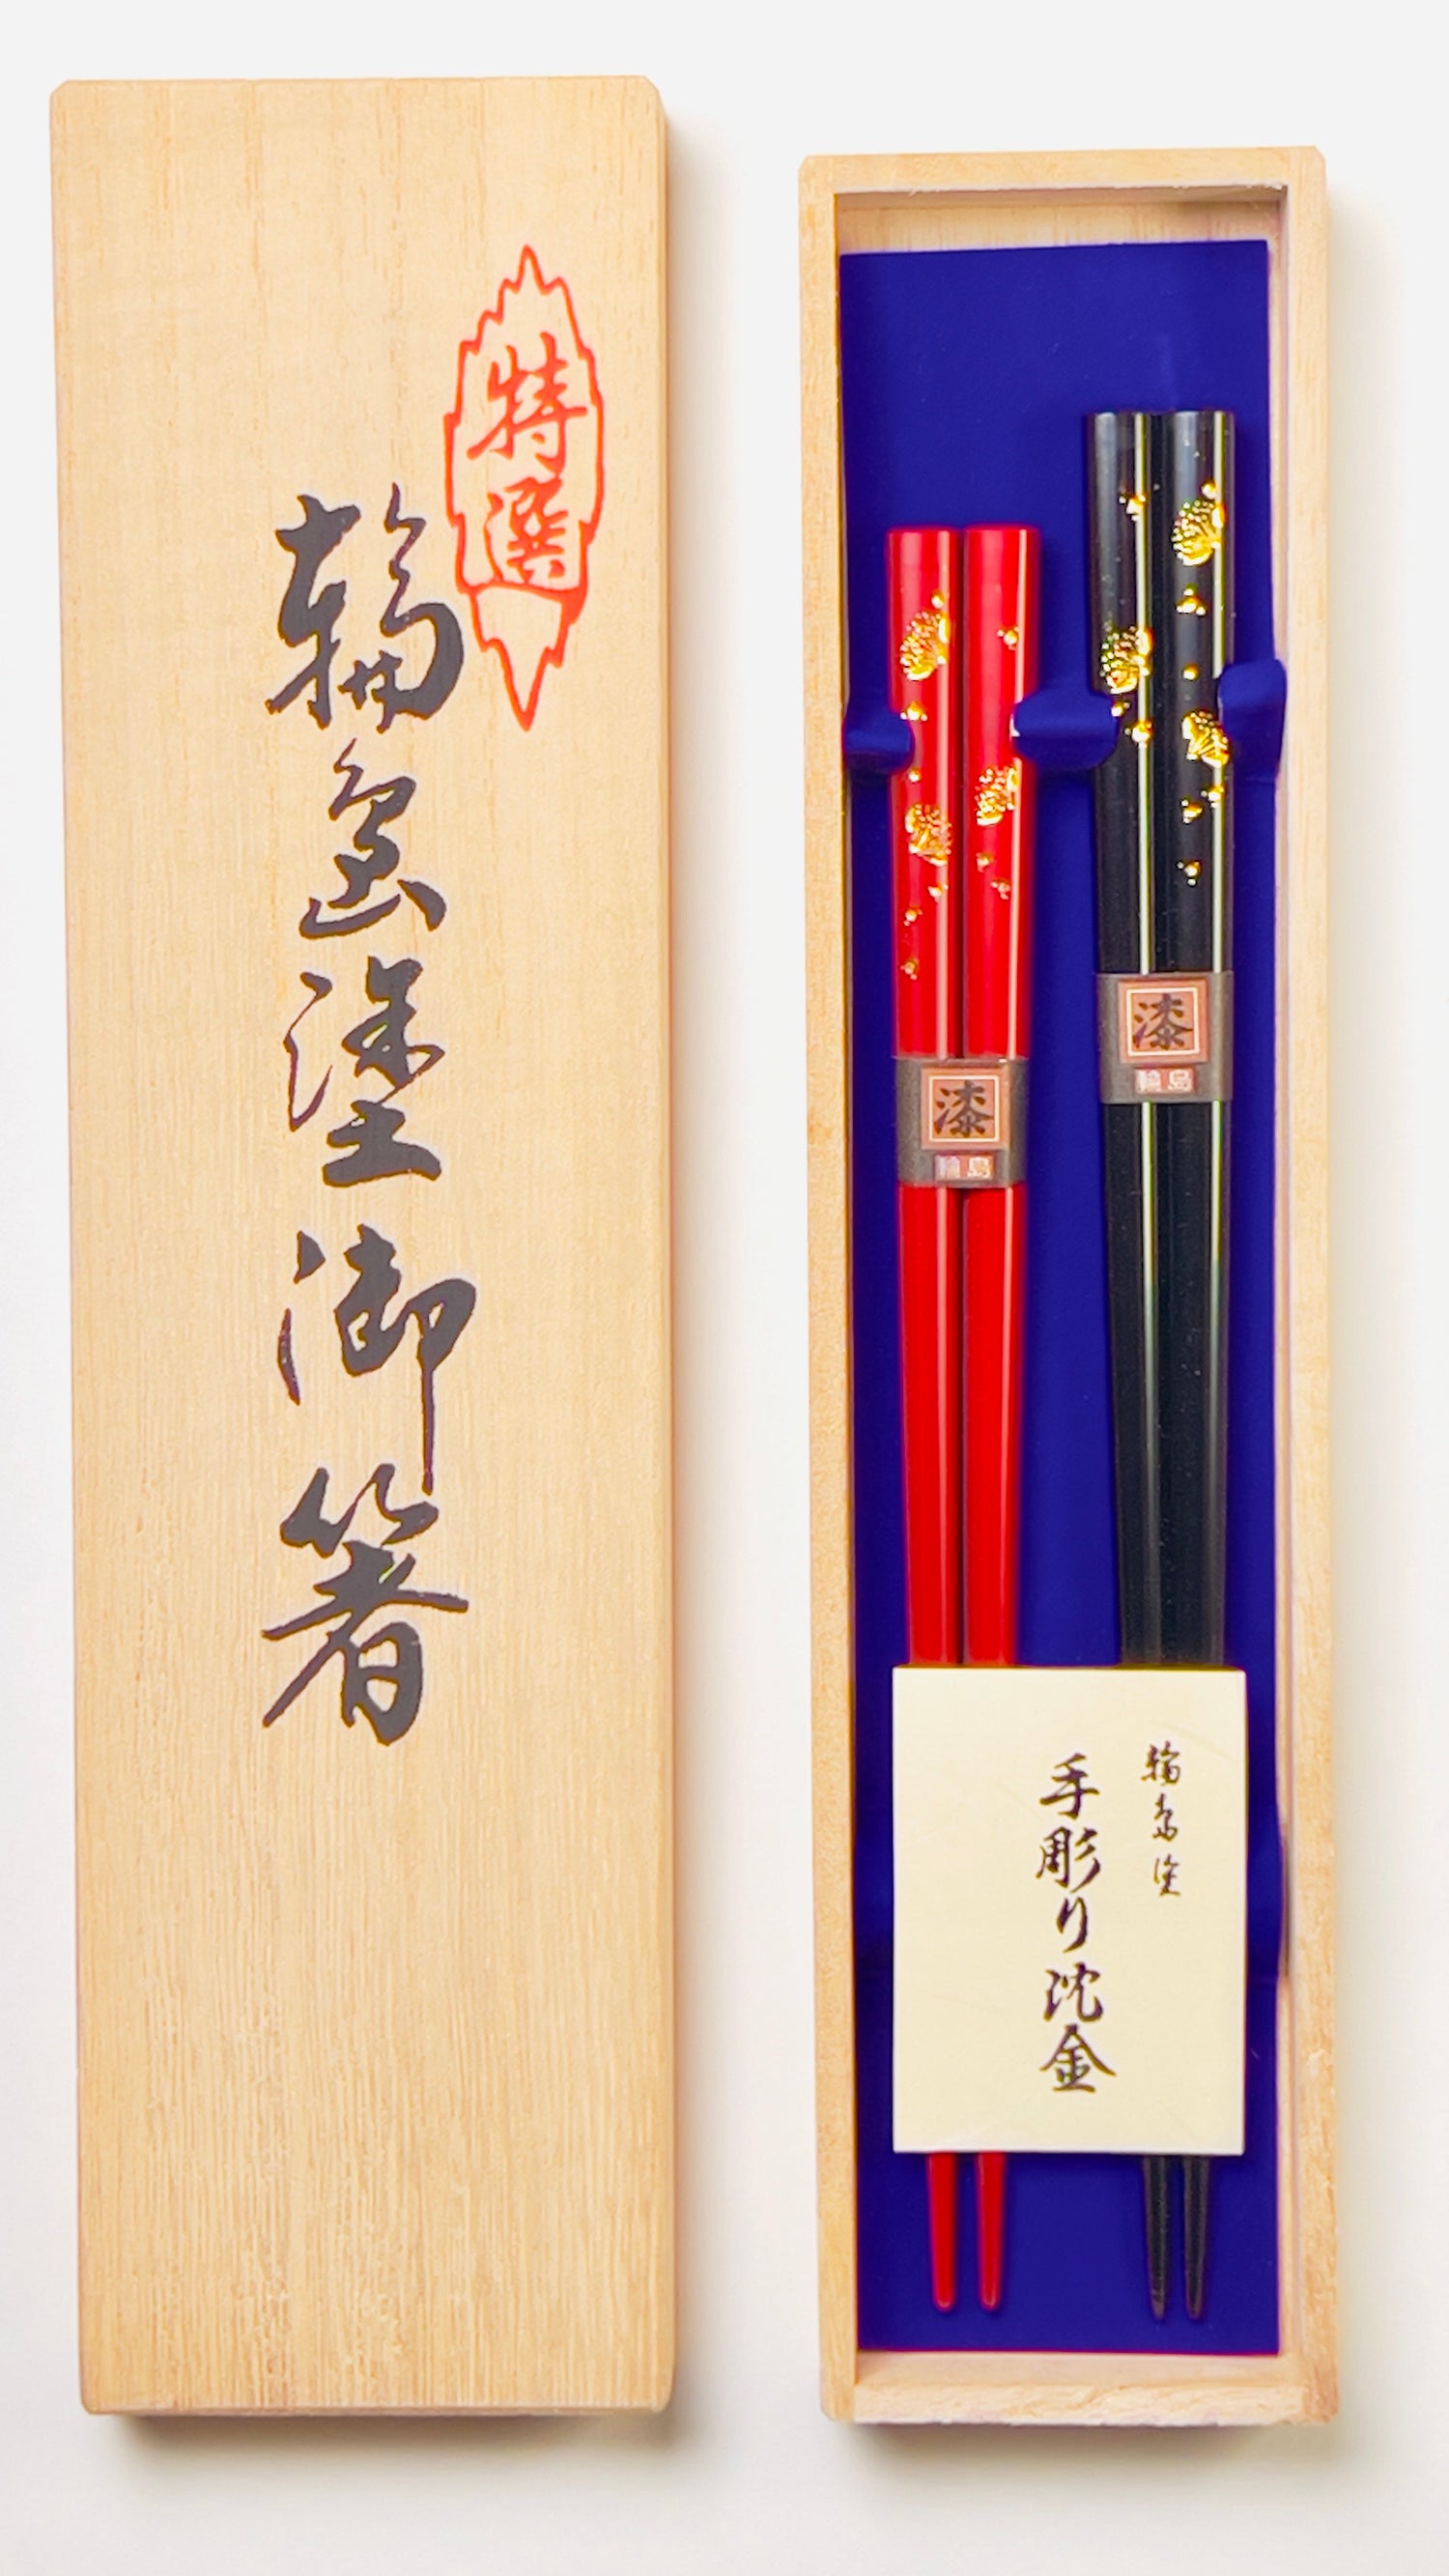 特選
輪島塗御箸
漆
輪島
漆
輪島
輪島塗
手彫り沈金